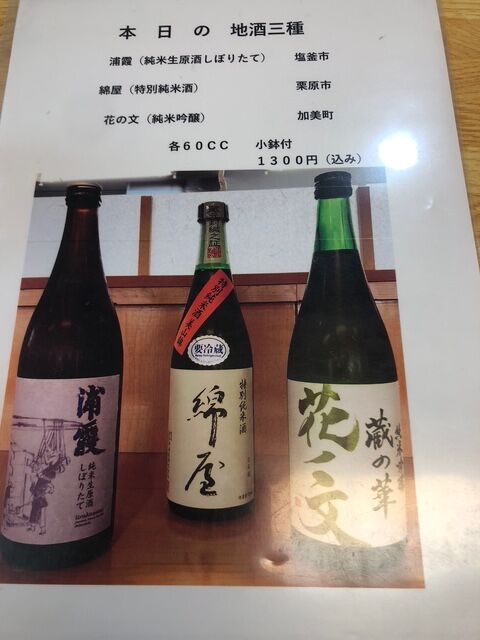 本日の地酒三種
浦霞（純米生原酒しぼりたて） 塩釜市
綿屋（特別純米酒） 栗原市
花の文（純米吟醸） 加美町
各60CC 小鉢付
1300円（込み）
浦霞
純米生原酒
しぼりたて
特別純米酒 美山錦
要冷蔵
特別純米酒
綿屋
花ノ文
蔵の華